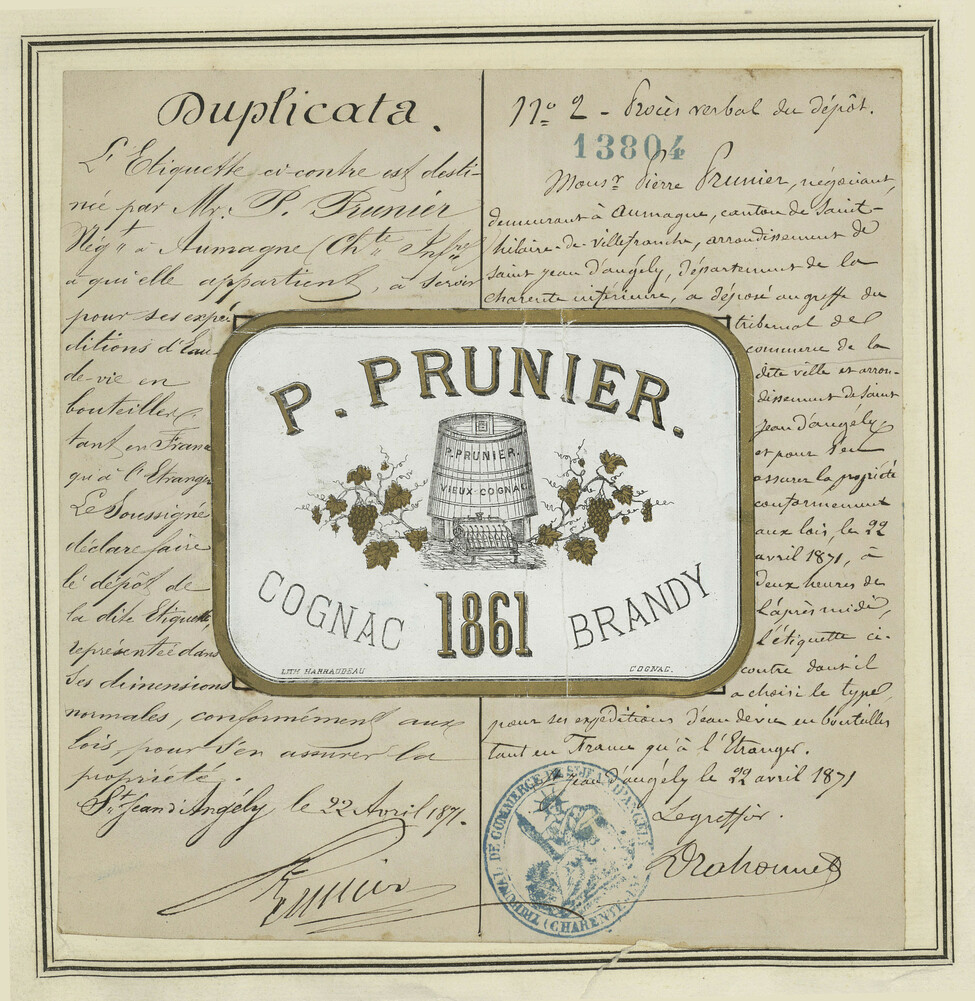 Duplicata.
L'Etiquette ci-contre est desti-
née par Mr. P. Prunier
Négt à Aumagne (Chte Infre)
à qui elle appartient, à servir
pour ses expé
ditions d'Eau-
de-vie en
bouteilles
tant en France
qu'à l'Etranger
Le Soussigné
déclare faire
le dépôt de
la dite Etiquette,
représentée dans
ses dimensions
normales, conformément aux
lois, pour s'en assurer la
propriété.
St Jean d'Angély le 22 Avril 1871.
Prunier
No 2 - Procès verbal du dépôt.
13804
Monsr Pierre Prunier, négociant,
demeurant à aumagne, canton de Saint-
hilaire-de-villefranche, arrondissement de
saint jean d'angély, département de la
charente inférieure, a déposé au greffe du
tribunal de
commerce de la
dite ville et arron-
dissement de saint
jean d'angély
et pour s'en
assurer la propriété
conformément
aux lois, le 22
avril 1871, à
deux heures de
l'après midi,
l'étiquette ci-
contre dont il
a choisi le type
pour ses expéditions d'eau de vie en bouteilles
tant en France qu'à l'Etranger.
St jean d'angély le 22 avril 1871
Le greffier.
P. PRUNIER.
P. PRUNIER.
VIEUX COGNAC
COGNAC 1861 BRANDY
LITH HARRAUDEAU COGNAC.
TRIBUNAL DE COMMERCE DE ST JEAN D'ANGELY
(CHARENTE INF